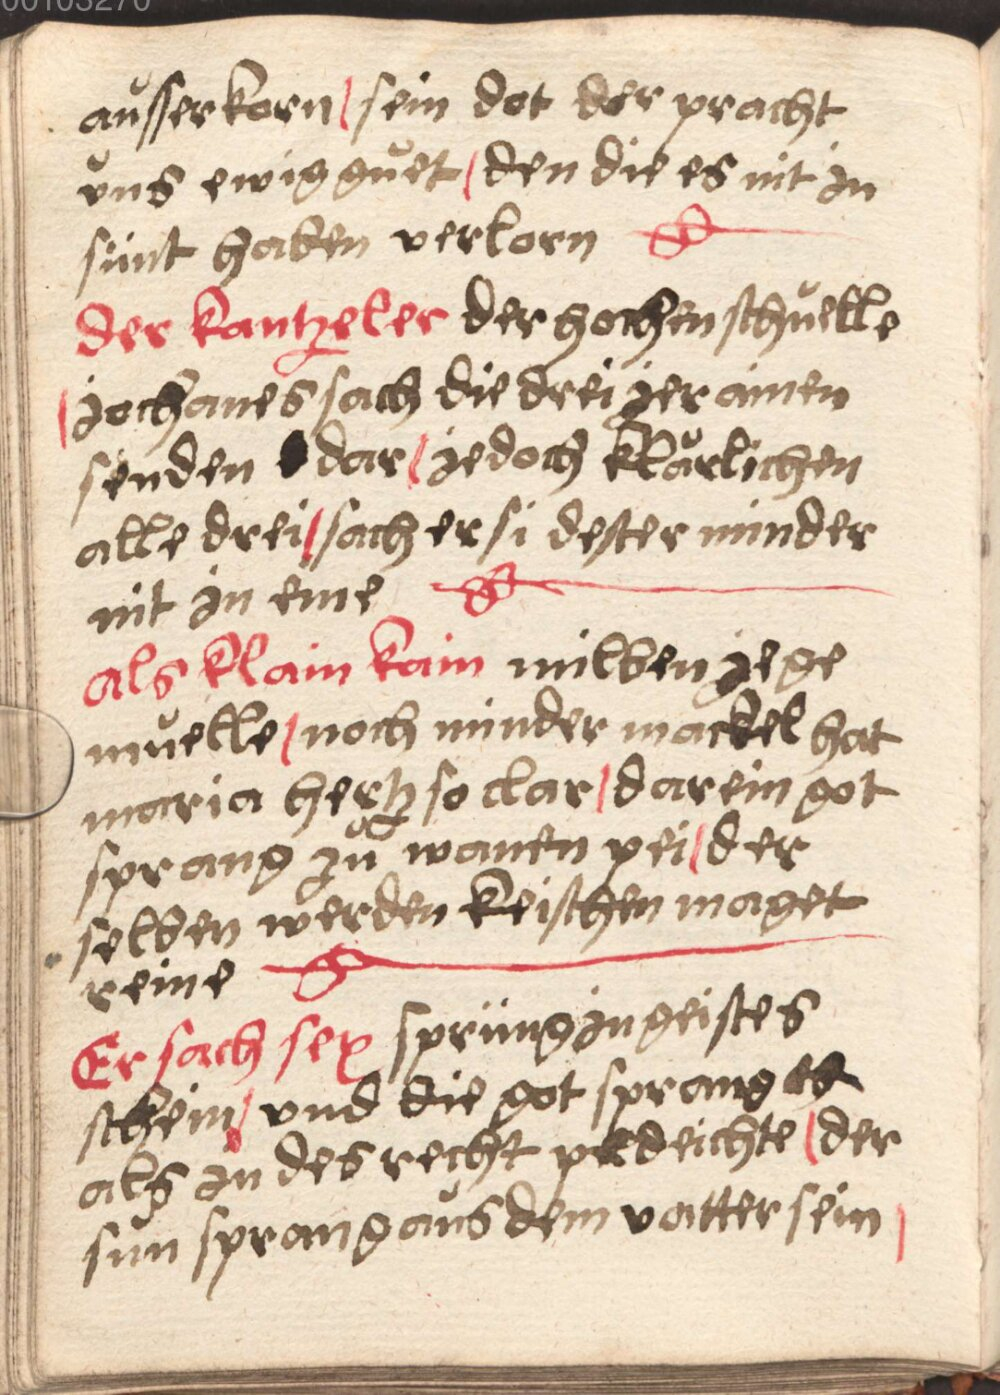 00103270
aůsserkorn / sein dot der pracht
vns ewig gůet / den die es nit jn
sünt haben verlorn
Der kantzeler der hochen schůelle
/ jochanes sach die drei jer ainen
senden dar / jedoch klärlichen
alle drei / sach er si dester minder
nit jn eine
Als klain kain milben jege
můelle / noch minder mackel hat
maria hertz so clar / darein got
sprang zů wanen pei / der
selben werden keischen maget
reine
Er sach sex sprüng jn geistes
schein / vnd die got sprang
als jn des recht pedeichte / der
sůn sprang aůs dem vatter sein /